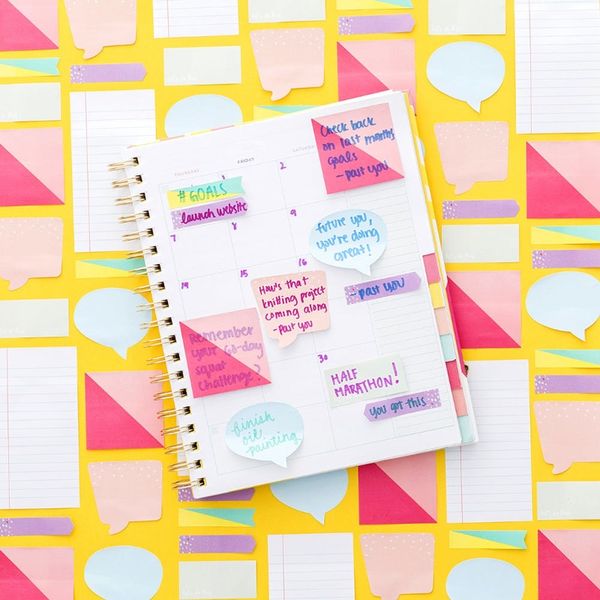 THURSDAY
FRIDAY
SATURDAY
1
2
Check back
on last month's
goals
- past you
#GOALS
launch website
7
8
9
future you,
you're doing
great!
14
15
16
How's that
knitting project
coming along
- past you
- past you
Remember
your 60-day
squat
challenge?
30
HALF
MARATHON!
you got this
finish
oil
painting